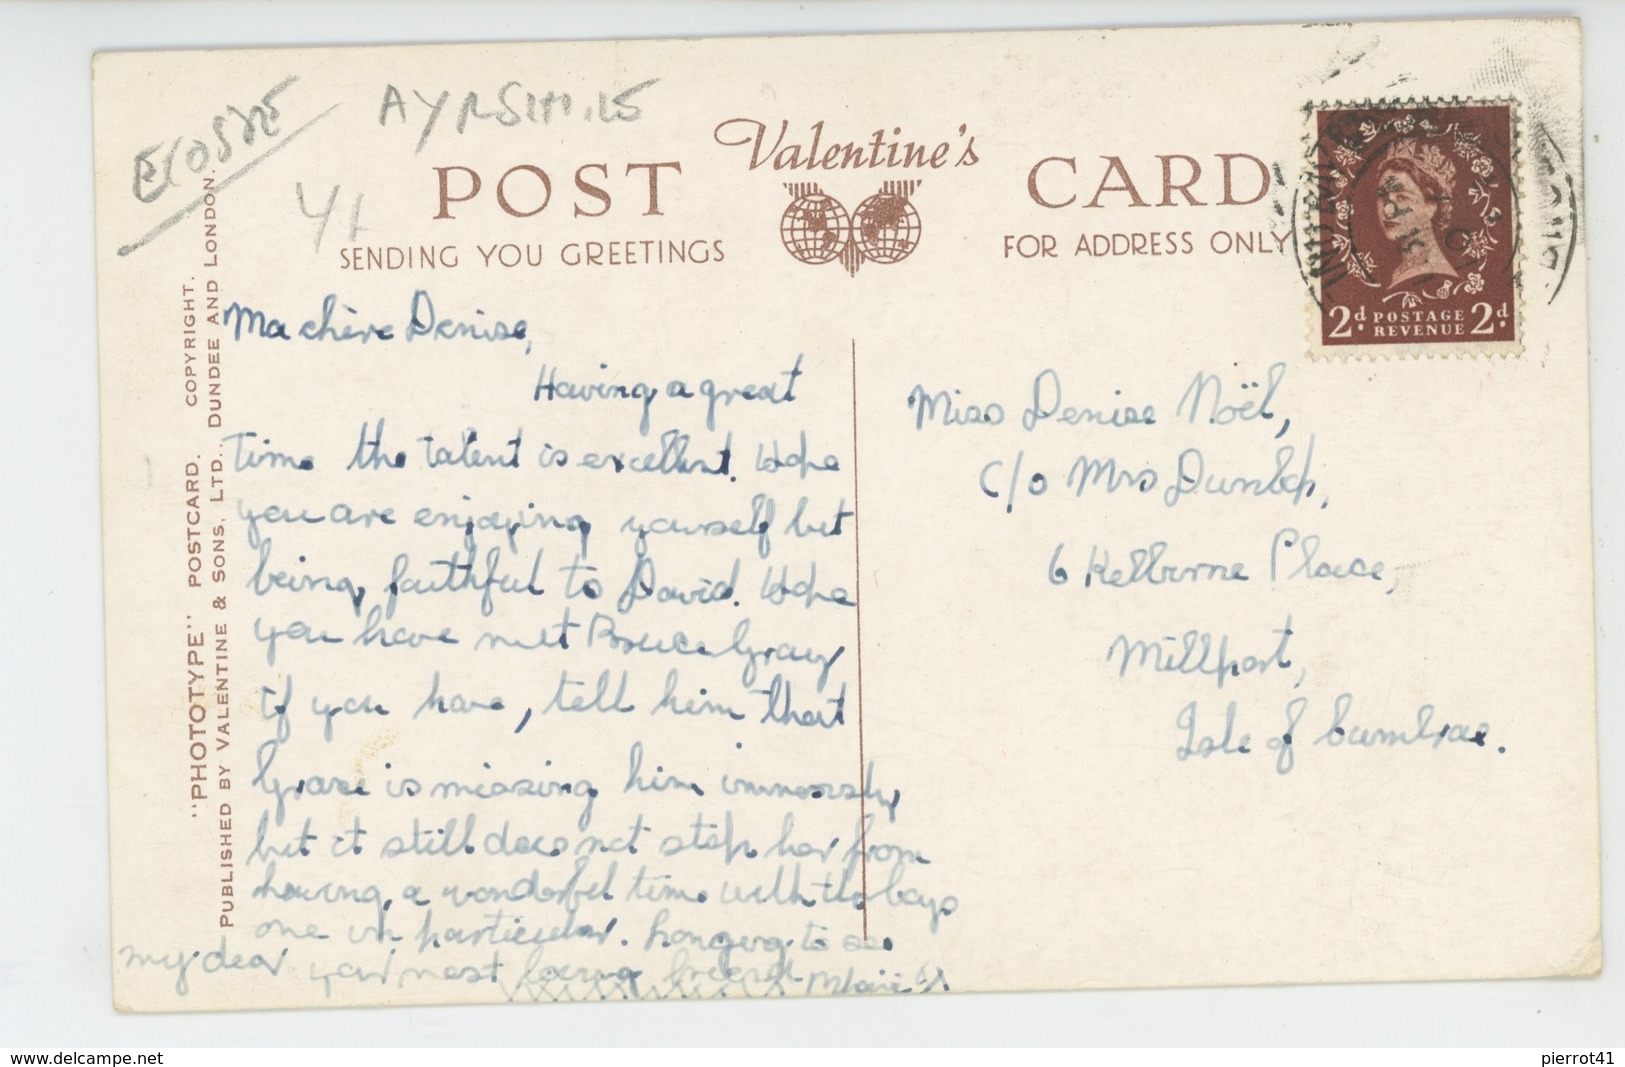 ECOSSE
AYRSHIRE
Valentine's
POST CARD
SENDING YOU GREETINGS
FOR ADDRESS ONLY
"PHOTOTYPE" POSTCARD. COPYRIGHT.
PUBLISHED BY VALENTINE & SONS, LTD., DUNDEE AND LONDON.
2d POSTAGE 2d
REVENUE
Ma chère Denise,
Having a great
time the talent is excellent. Hope
you are enjoying yourself but
being faithful to David. Hope
you have met Bruce Gray
if you have, tell him that
Grace is missing him immensely
but it still does not stop her from
having a wonderful time with the boys
one in particular. Longing to see
my dear your most loving friend
Miss Denise Noël,
c/o Mrs Dunlop,
6 Kelburne Place,
Millport,
Isle of Cumbrae.
www.delcampe.net
pierrot41